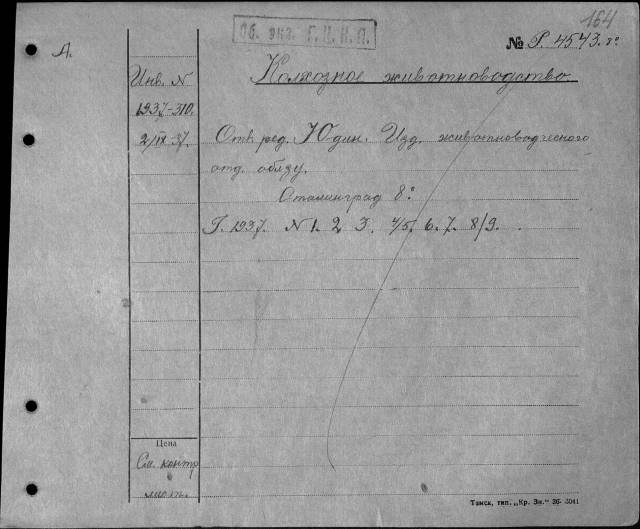 164
Об. экз. Г.Ц.К.П.
А.
№ Р. 4543. 8°
Инв. N
Колхозное животноводство
1937-310.
2/IX-37.
Отв. ред. Юдин. Изд. животноводческого
отд. облзу.
Сталинград 8°
Г. 1937. N 1. 2. 3. 4/5. 6. 7. 8/9.
Цена
См. контр.
Томск, тип. „Кр. Зн." 36- 5041